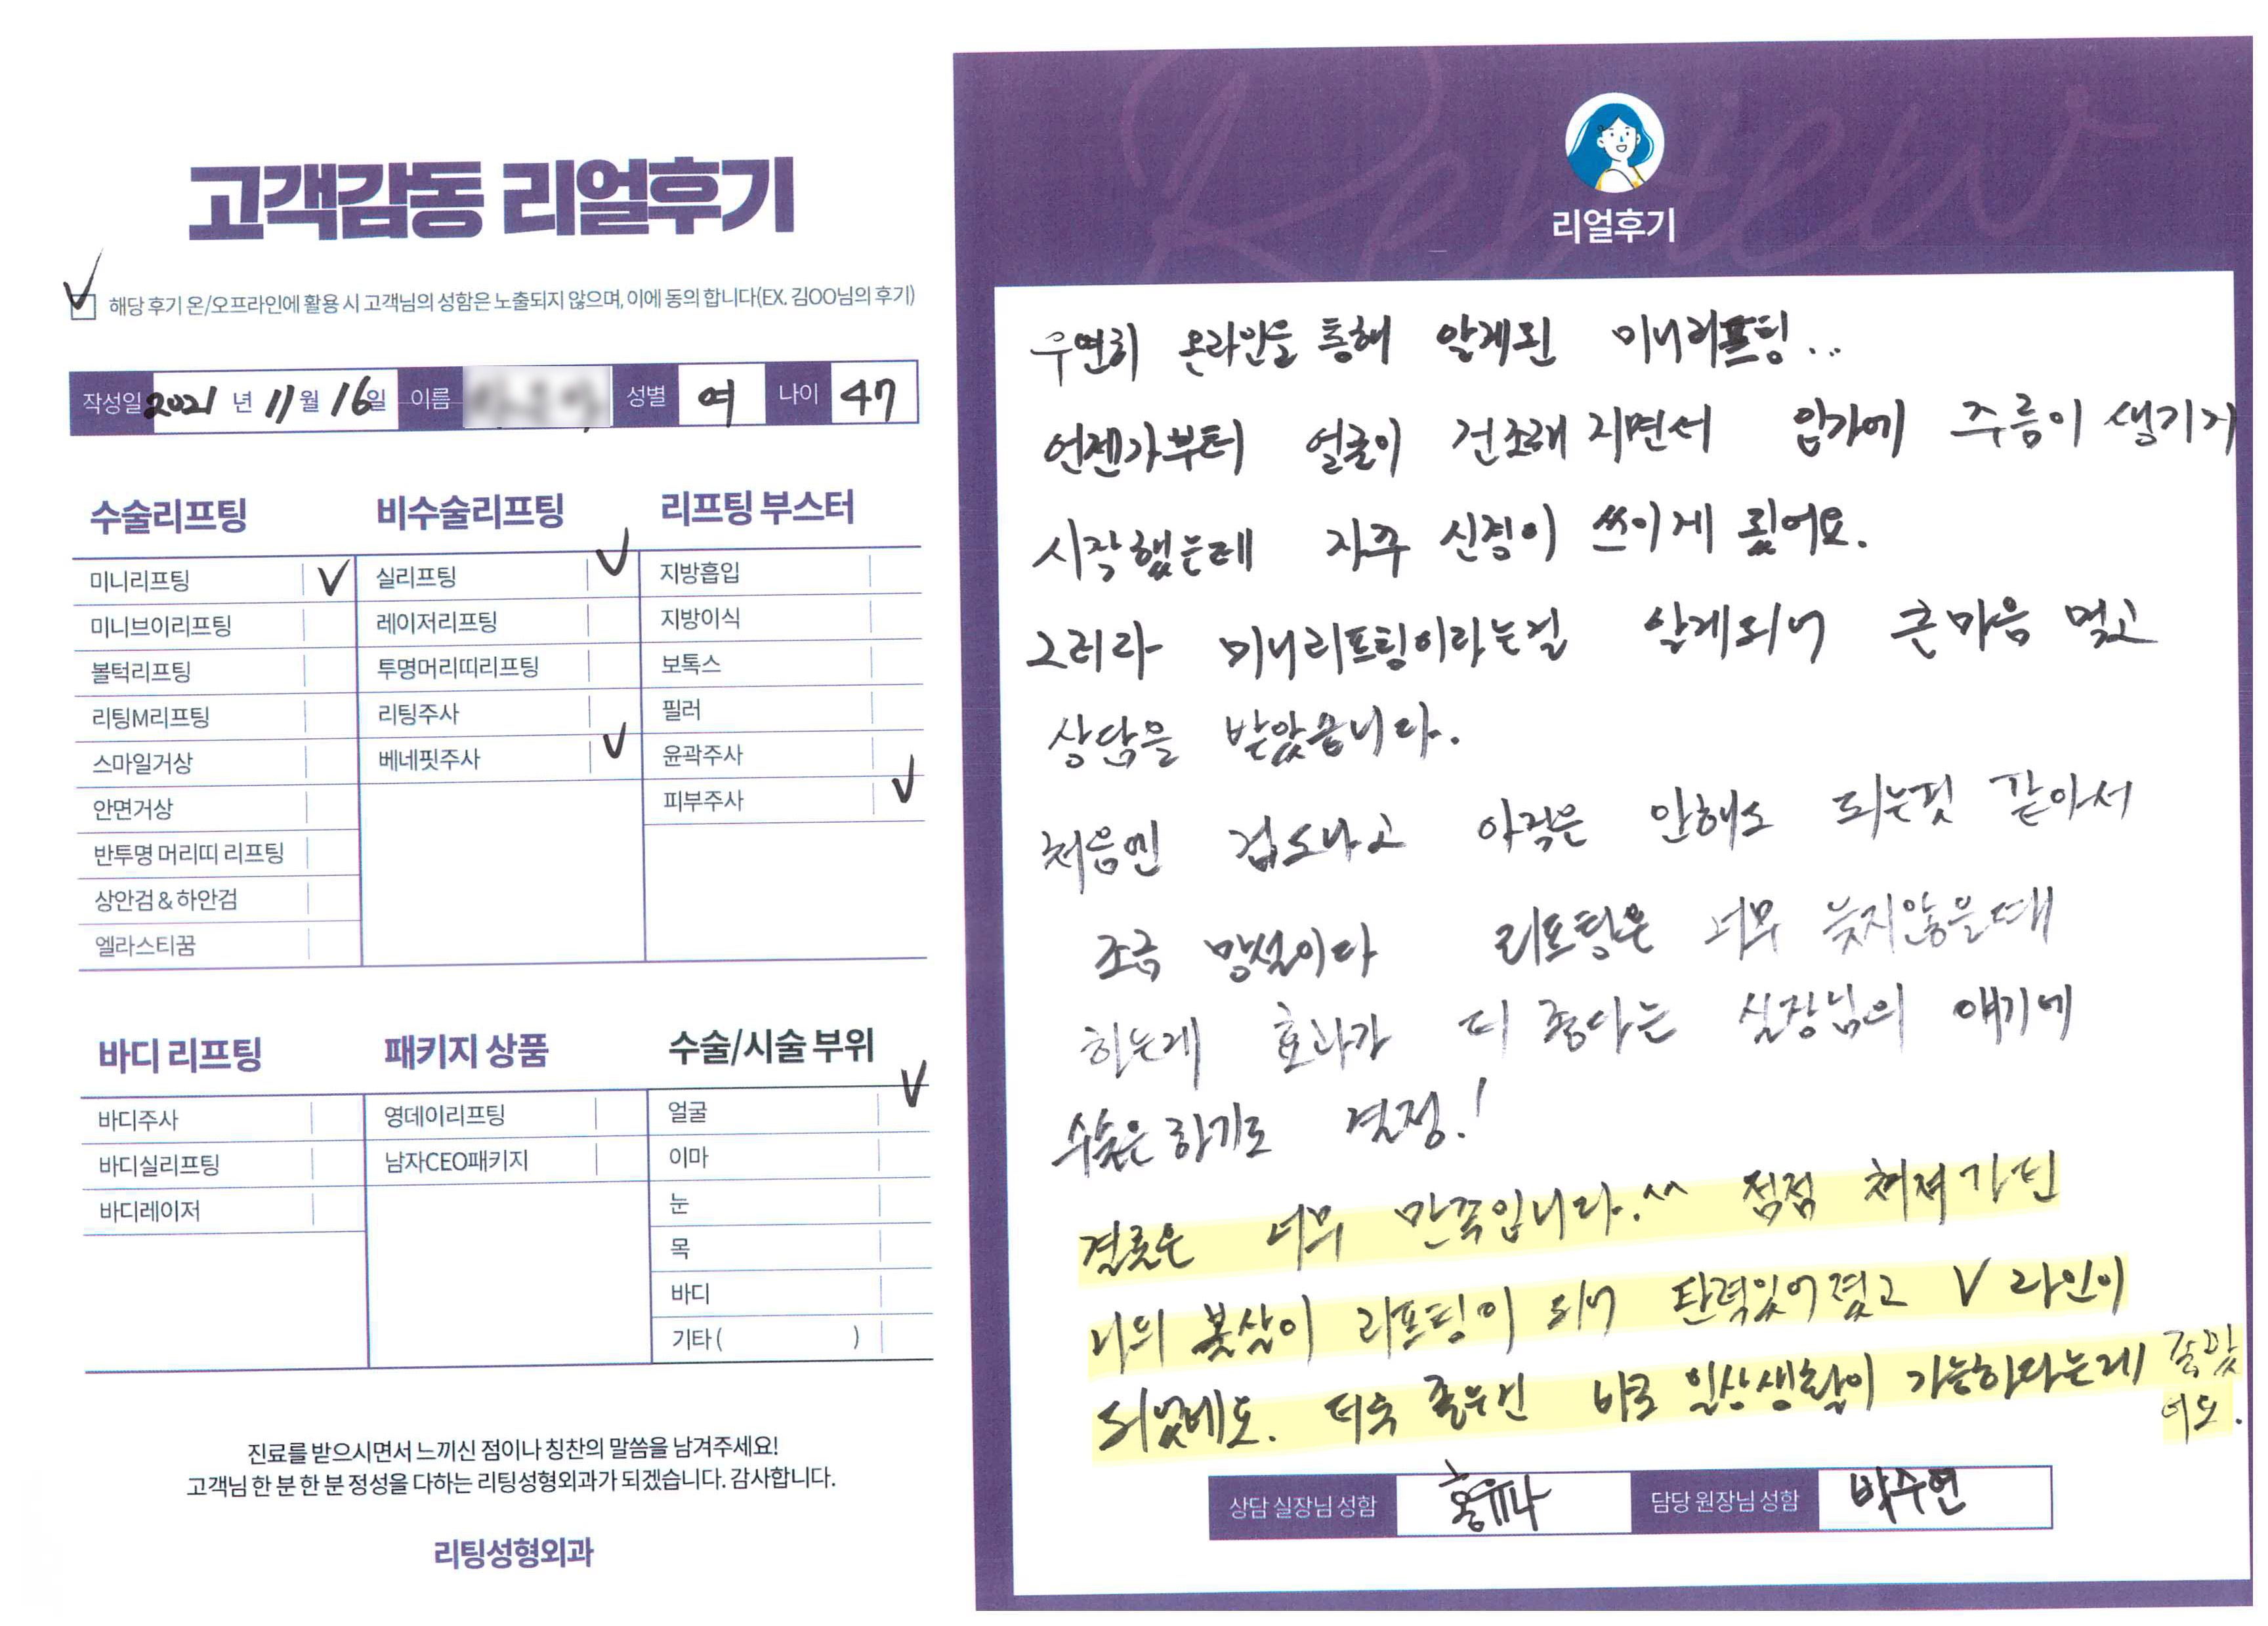 고객감동 리얼후기
해당 후기 온/오프라인에 활용 시 고객님의 성함은 노출되지 않으며, 이에 동의 합니다(EX. 김OO님의 후기)
작성일 2021 년 11 월 16 일 이름 성별 여 나이 47
수술리프팅
미니리프팅 ✓
미니브이리프팅
볼턱리프팅
리팅M리프팅
스마일거상
안면거상
반투명 머리띠 리프팅
상안검 & 하안검
엘라스티꿈
비수술리프팅
실리프팅 ✓
레이저리프팅
투명머리띠리프팅
리팅주사
베네핏주사 ✓
리프팅 부스터
지방흡입
지방이식
보톡스
필러
윤곽주사
피부주사 ✓
바디 리프팅
바디주사
바디실리프팅
바디레이저
패키지 상품
영데이리프팅
남자CEO패키지
수술/시술 부위
얼굴 ✓
이마
눈
목
바디
기타 ( )
진료를 받으시면서 느끼신 점이나 칭찬의 말씀을 남겨주세요!
고객님 한 분 한 분 정성을 다하는 리팅성형외과가 되겠습니다. 감사합니다.
리팅성형외과
Review
리얼후기
우연히 온라인을 통해 알게된 미니리프팅..
언젠가부터 얼굴이 건조해 지면서 입가에 주름이 생기기
시작했는데 자주 신경이 쓰이게 됬어요.
그러다 미니리프팅이라는걸 알게되어 큰마음 먹고
상담을 받았습니다.
처음엔 겁도나고 아직은 안해도 되는것 같아서
조금 망설이다 리프팅은 너무 늦지않을때
하는게 효과가 더 좋다는 실장님의 얘기에
수술은 하기로 결정!
결론은 너무 만족입니다.^^ 점점 쳐져가던
나의 볼살이 리프팅이 되어 탄력있어졌고 V 라인이
되었네요. 더욱 좋은건 바로 일상생활이 가능하다는데 잘맞
네요.
상담 실장님 성함 홍유나 담당 원장님 성함 박수연